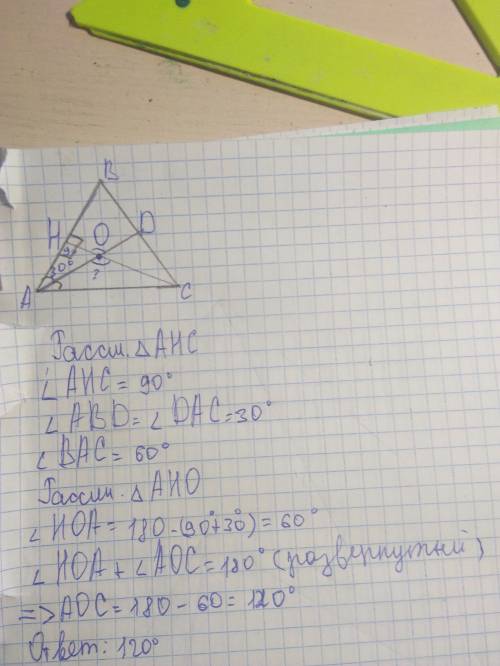 B
H O D
90
30°
?
A C
Рассм. △ AHC
∠ AHC = 90°
∠ ABD = ∠ DAC = 30°
∠ BAC = 60°
Рассм. △ AHO
∠ HOA = 180 - (90° + 30°) = 60°
∠ HOA + ∠ AOC = 180° (развернутый)
=> AOC = 180 - 60 = 120°
Ответ: 120°